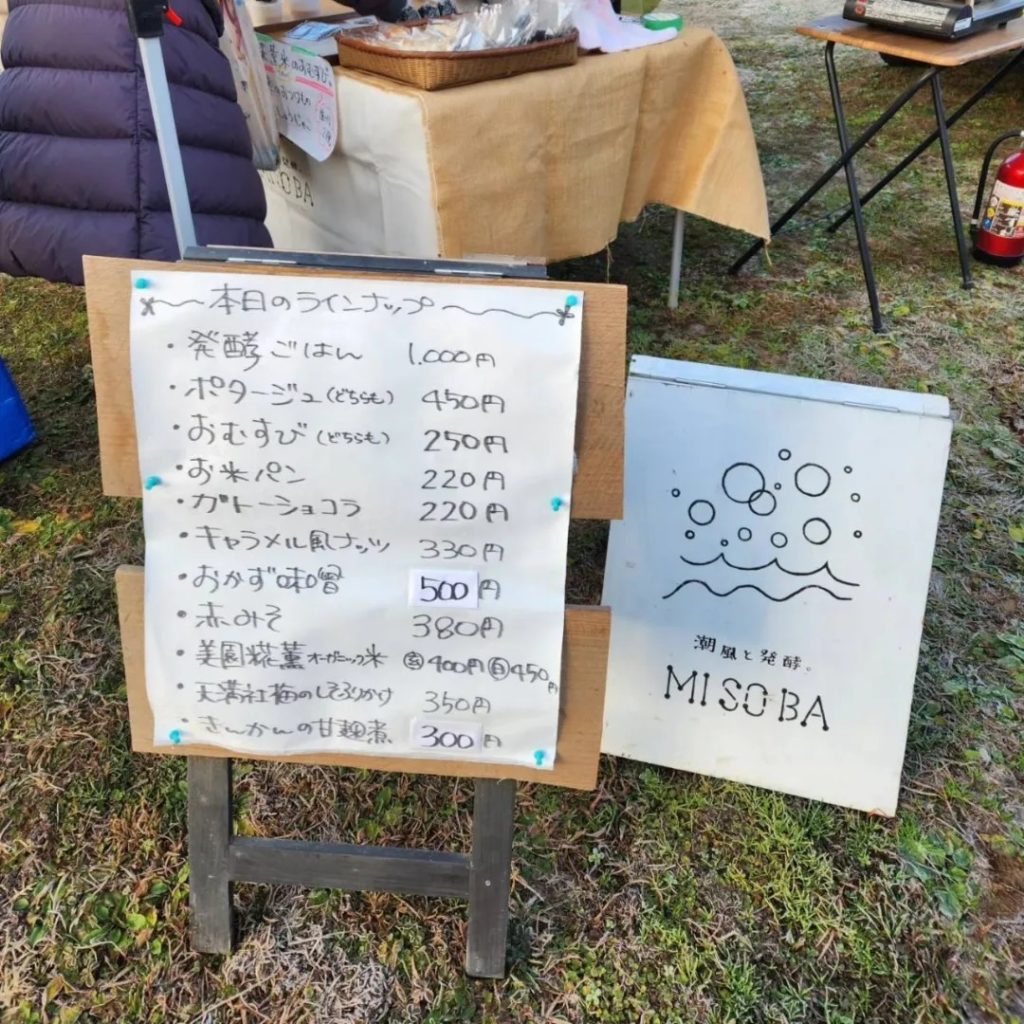 葉米のおむすび。
MISOBA
本日のラインナップ
・発酵ごはん 1.000円
・ポタージュ(どちらも) 450円
・おむすび(どちらも) 250円
・お米パン 220円
・ガトーショコラ 220円
・キャラメル風ナッツ 330円
・おかず味噌 500円
・赤みそ 380円
・美園糀薫オーガニック米 400円 450円
・天満紅梅のしそふりかけ 350円
・きんかんの甘麹煮 300円
潮風と発酵。
MISOBA